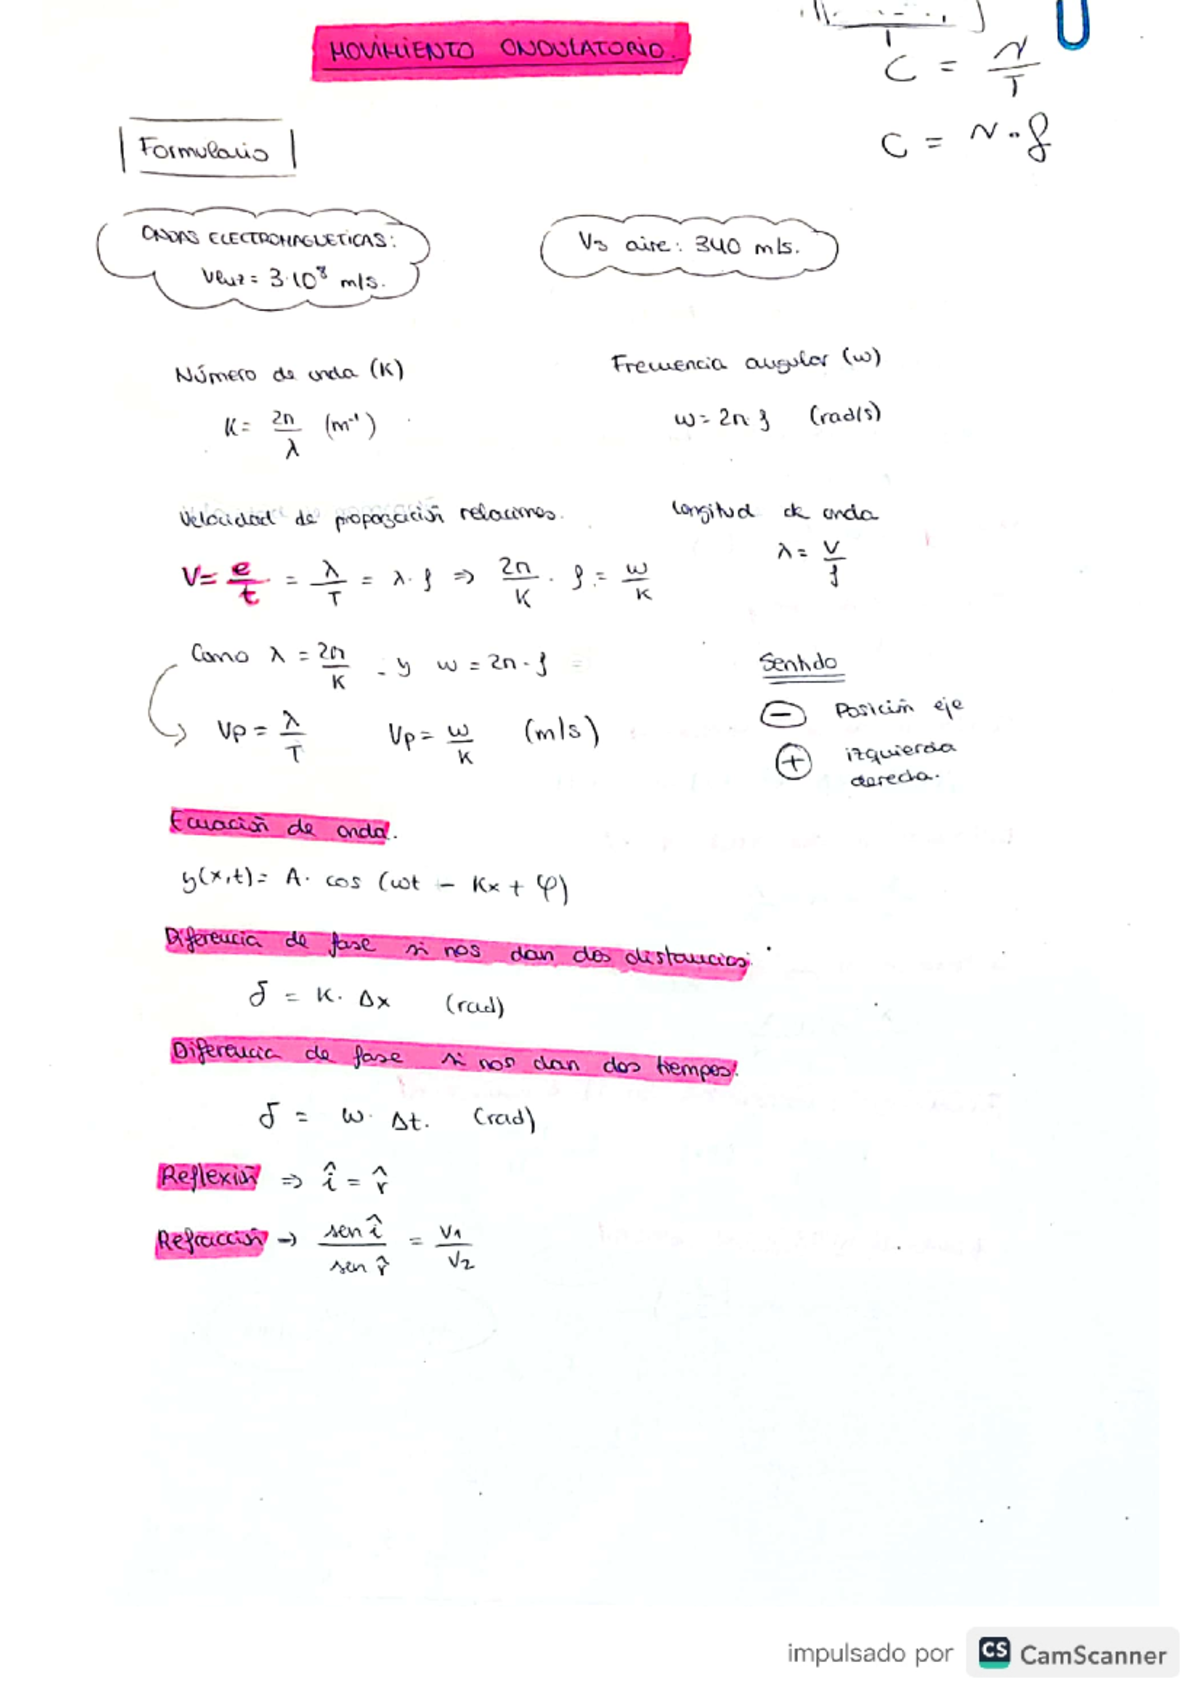 MOVIMIENTO ONDULATORIO.
C = λ/T
C = λ·f
Formulario
ONDAS ELECTROMAGNETICAS:
Vluz = 3·10⁸ m/s.
Vs aire: 340 m/s.
Número de onda (K)
Frecuencia angular (w)
K = 2π/λ (m⁻¹)
w = 2π·f (rad/s)
Velocidad de propagación relaciones.
Longitud de onda
V = e/t = λ/T = λ·f ⇒ 2π/K · f = w/K
λ = V/f
Como λ = 2π/K y w = 2π·f
Sentido
Vp = λ/T Vp = w/K (m/s)
⊖ Posición eje
⊕ izquierda
derecha.
Ecuación de onda.
y(x,t) = A· cos (wt - Kx + φ)
Diferencia de fase si nos dan dos distancias.
δ = K· Δx (rad)
Diferencia de fase si nos dan dos tiempos.
δ = w· Δt. (rad)
Reflexión ⇒ î = r̂
Refracción → sen î / sen r̂ = V1/V2
impulsado por CS CamScanner